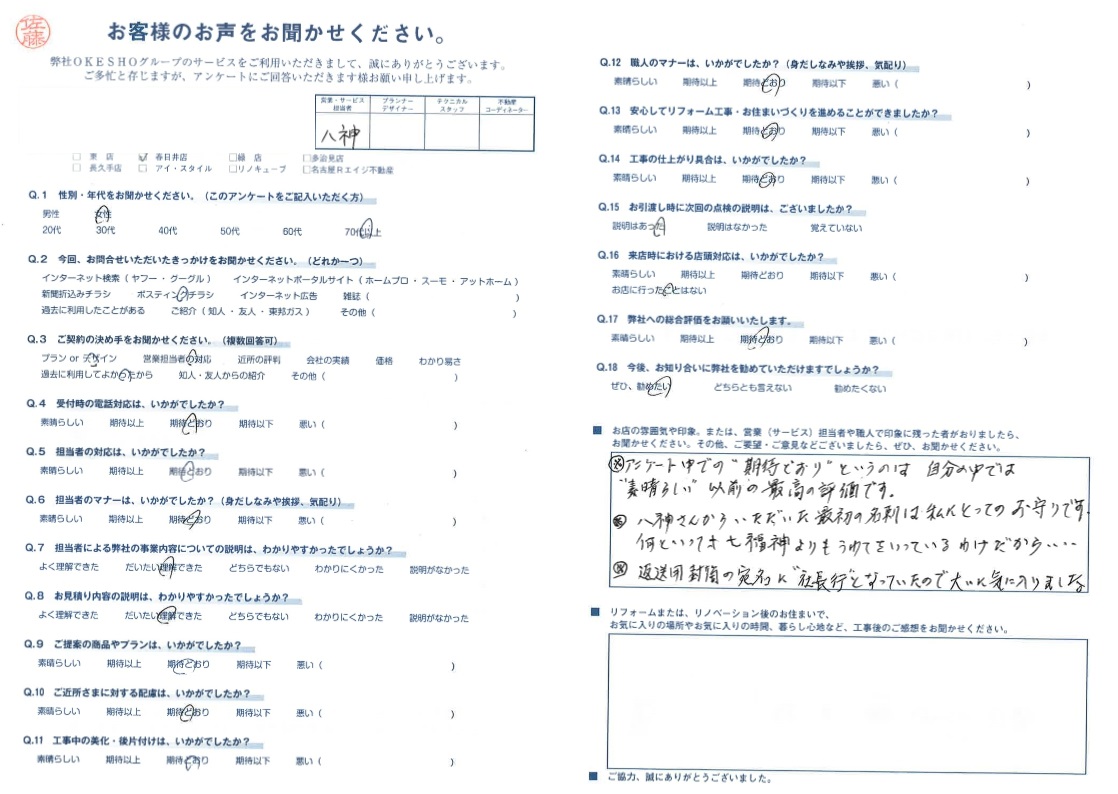 佐藤
お客様のお声をお聞かせください。
弊社OKESHOグループのサービスをご利用いただきまして、誠にありがとうございます。
ご多忙と存じますが、アンケートにご回答いただきます様お願い申し上げます。
営業・サービス担当者 プランナーデザイナー テクニカルスタッフ 不動産コーディネーター
八神
□ 東 店 ☑ 春日井店 □緑 店 □多治見店
□ 長久手店 □ アイ・スタイル □リノキューブ □名古屋Rエイジ不動産
Q.1 性別・年代をお聞かせください。（このアンケートをご記入いただく方）
男性 女性
20代 30代 40代 50代 60代 70代以上
Q.2 今回、お問合せいただいたきっかけをお聞かせください。（どれか一つ）
インターネット検索（ ヤフー ・ グーグル ） インターネットポータルサイト（ ホームプロ ・ スーモ ・ アットホーム ）
新聞折込みチラシ ポスティングチラシ インターネット広告 雑誌（ ）
過去に利用したことがある ご紹介（ 知人 ・ 友人 ・ 東邦ガス ） その他（ ）
Q.3 ご契約の決め手をお聞かせください。（複数回答可）
プラン or デザイン 営業担当者の対応 近所の評判 会社の実績 価格 わかり易さ
過去に利用してよかったから 知人・友人からの紹介 その他（ ）
Q.4 受付時の電話対応は、いかがでしたか？
素晴らしい 期待以上 期待どおり 期待以下 悪い（ ）
Q.5 担当者の対応は、いかがでしたか？
素晴らしい 期待以上 期待どおり 期待以下 悪い（ ）
Q.6 担当者のマナーは、いかがでしたか？（身だしなみや挨拶、気配り）
素晴らしい 期待以上 期待どおり 期待以下 悪い（ ）
Q.7 担当者による弊社の事業内容についての説明は、わかりやすかったでしょうか？
よく理解できた だいたい理解できた どちらでもない わかりにくかった 説明がなかった
Q.8 お見積り内容の説明は、わかりやすかったでしょうか？
よく理解できた だいたい理解できた どちらでもない わかりにくかった 説明がなかった
Q.9 ご提案の商品やプランは、いかがでしたか？
素晴らしい 期待以上 期待どおり 期待以下 悪い（ ）
Q.10 ご近所さまに対する配慮は、いかがでしたか？
素晴らしい 期待以上 期待どおり 期待以下 悪い（ ）
Q.11 工事中の美化・後片付けは、いかがでしたか？
素晴らしい 期待以上 期待どおり 期待以下 悪い（ ）
Q.12 職人のマナーは、いかがでしたか？（身だしなみや挨拶、気配り）
素晴らしい 期待以上 期待どおり 期待以下 悪い（ ）
Q.13 安心してリフォーム工事・お住まいづくりを進めることができましたか？
素晴らしい 期待以上 期待どおり 期待以下 悪い（ ）
Q.14 工事の仕上がり具合は、いかがでしたか？
素晴らしい 期待以上 期待どおり 期待以下 悪い（ ）
Q.15 お引渡し時に次回の点検の説明は、ございましたか？
説明はあった 説明はなかった 覚えていない
Q.16 来店時における店頭対応は、いかがでしたか？
素晴らしい 期待以上 期待どおり 期待以下 悪い（ ）
お店に行ったことはない
Q.17 弊社への総合評価をお願いいたします。
素晴らしい 期待以上 期待どおり 期待以下 悪い（ ）
Q.18 今後、お知り合いに弊社を勧めていただけますでしょうか？
ぜひ、勧めたい どちらとも言えない 勧めたくない
■ お店の雰囲気や印象、または、営業（サービス）担当者や職人で印象に残った者がおりましたら、
お聞かせください。その他、ご要望・ご意見などございましたら、ぜひ、お聞かせください。
※アンケート中での“期待どおり”というのは 自分の中では
“素晴らしい”以前の最高の評価です。
※ 八神さんからいただいた最初の名刺は私にとってのお守りです。
何といっても七福神よりもうわてをいっているわけだから‥‥
※ 返送用封筒の宛名に“社長行”となっていたので大いに気に入りました。
■ リフォームまたは、リノベーション後のお住まいで、
お気に入りの場所やお気に入りの時間、暮らし心地など、工事後のご感想をお聞かせください。
■ ご協力、誠にありがとうございました。